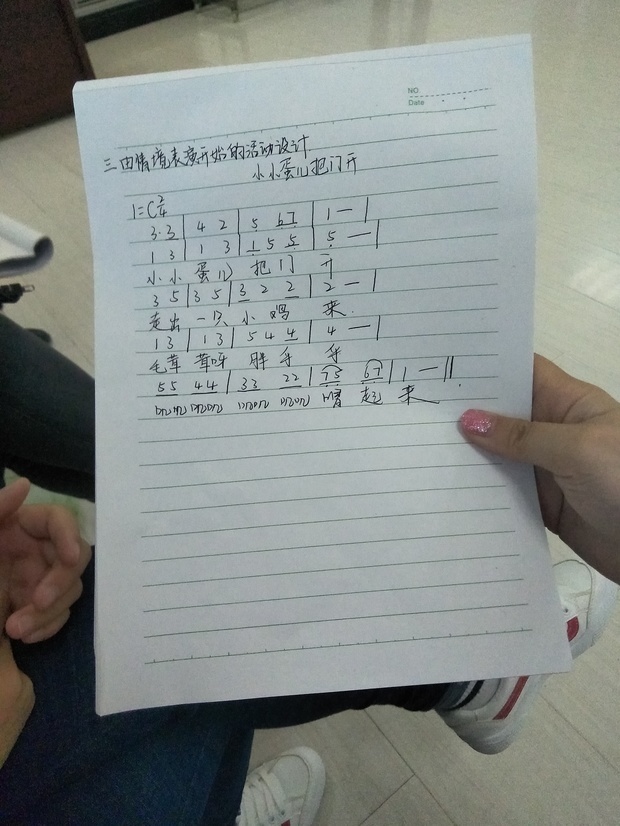 NO
Date
三.由情境表演开始的活动设计.
小小蛋儿把门开
1=C 2/4
3·3 | 4 2 | 5 67 | 1 — |
1 3 | 1 3 | 1 5 5 | 5 — |
小小 蛋儿 把门 开
3 5 | 3 5 | 3 2 2 | 2 — |
走出 一只 小 鸡 来.
1 3 | 1 3 | 5 4 4 | 4 — |
毛茸 茸呀 胖 乎 乎
55 44 | 33 22 | 75 67 | 1 — ‖
叽叽 叽叽 叽叽 叽叽 唱 起 来